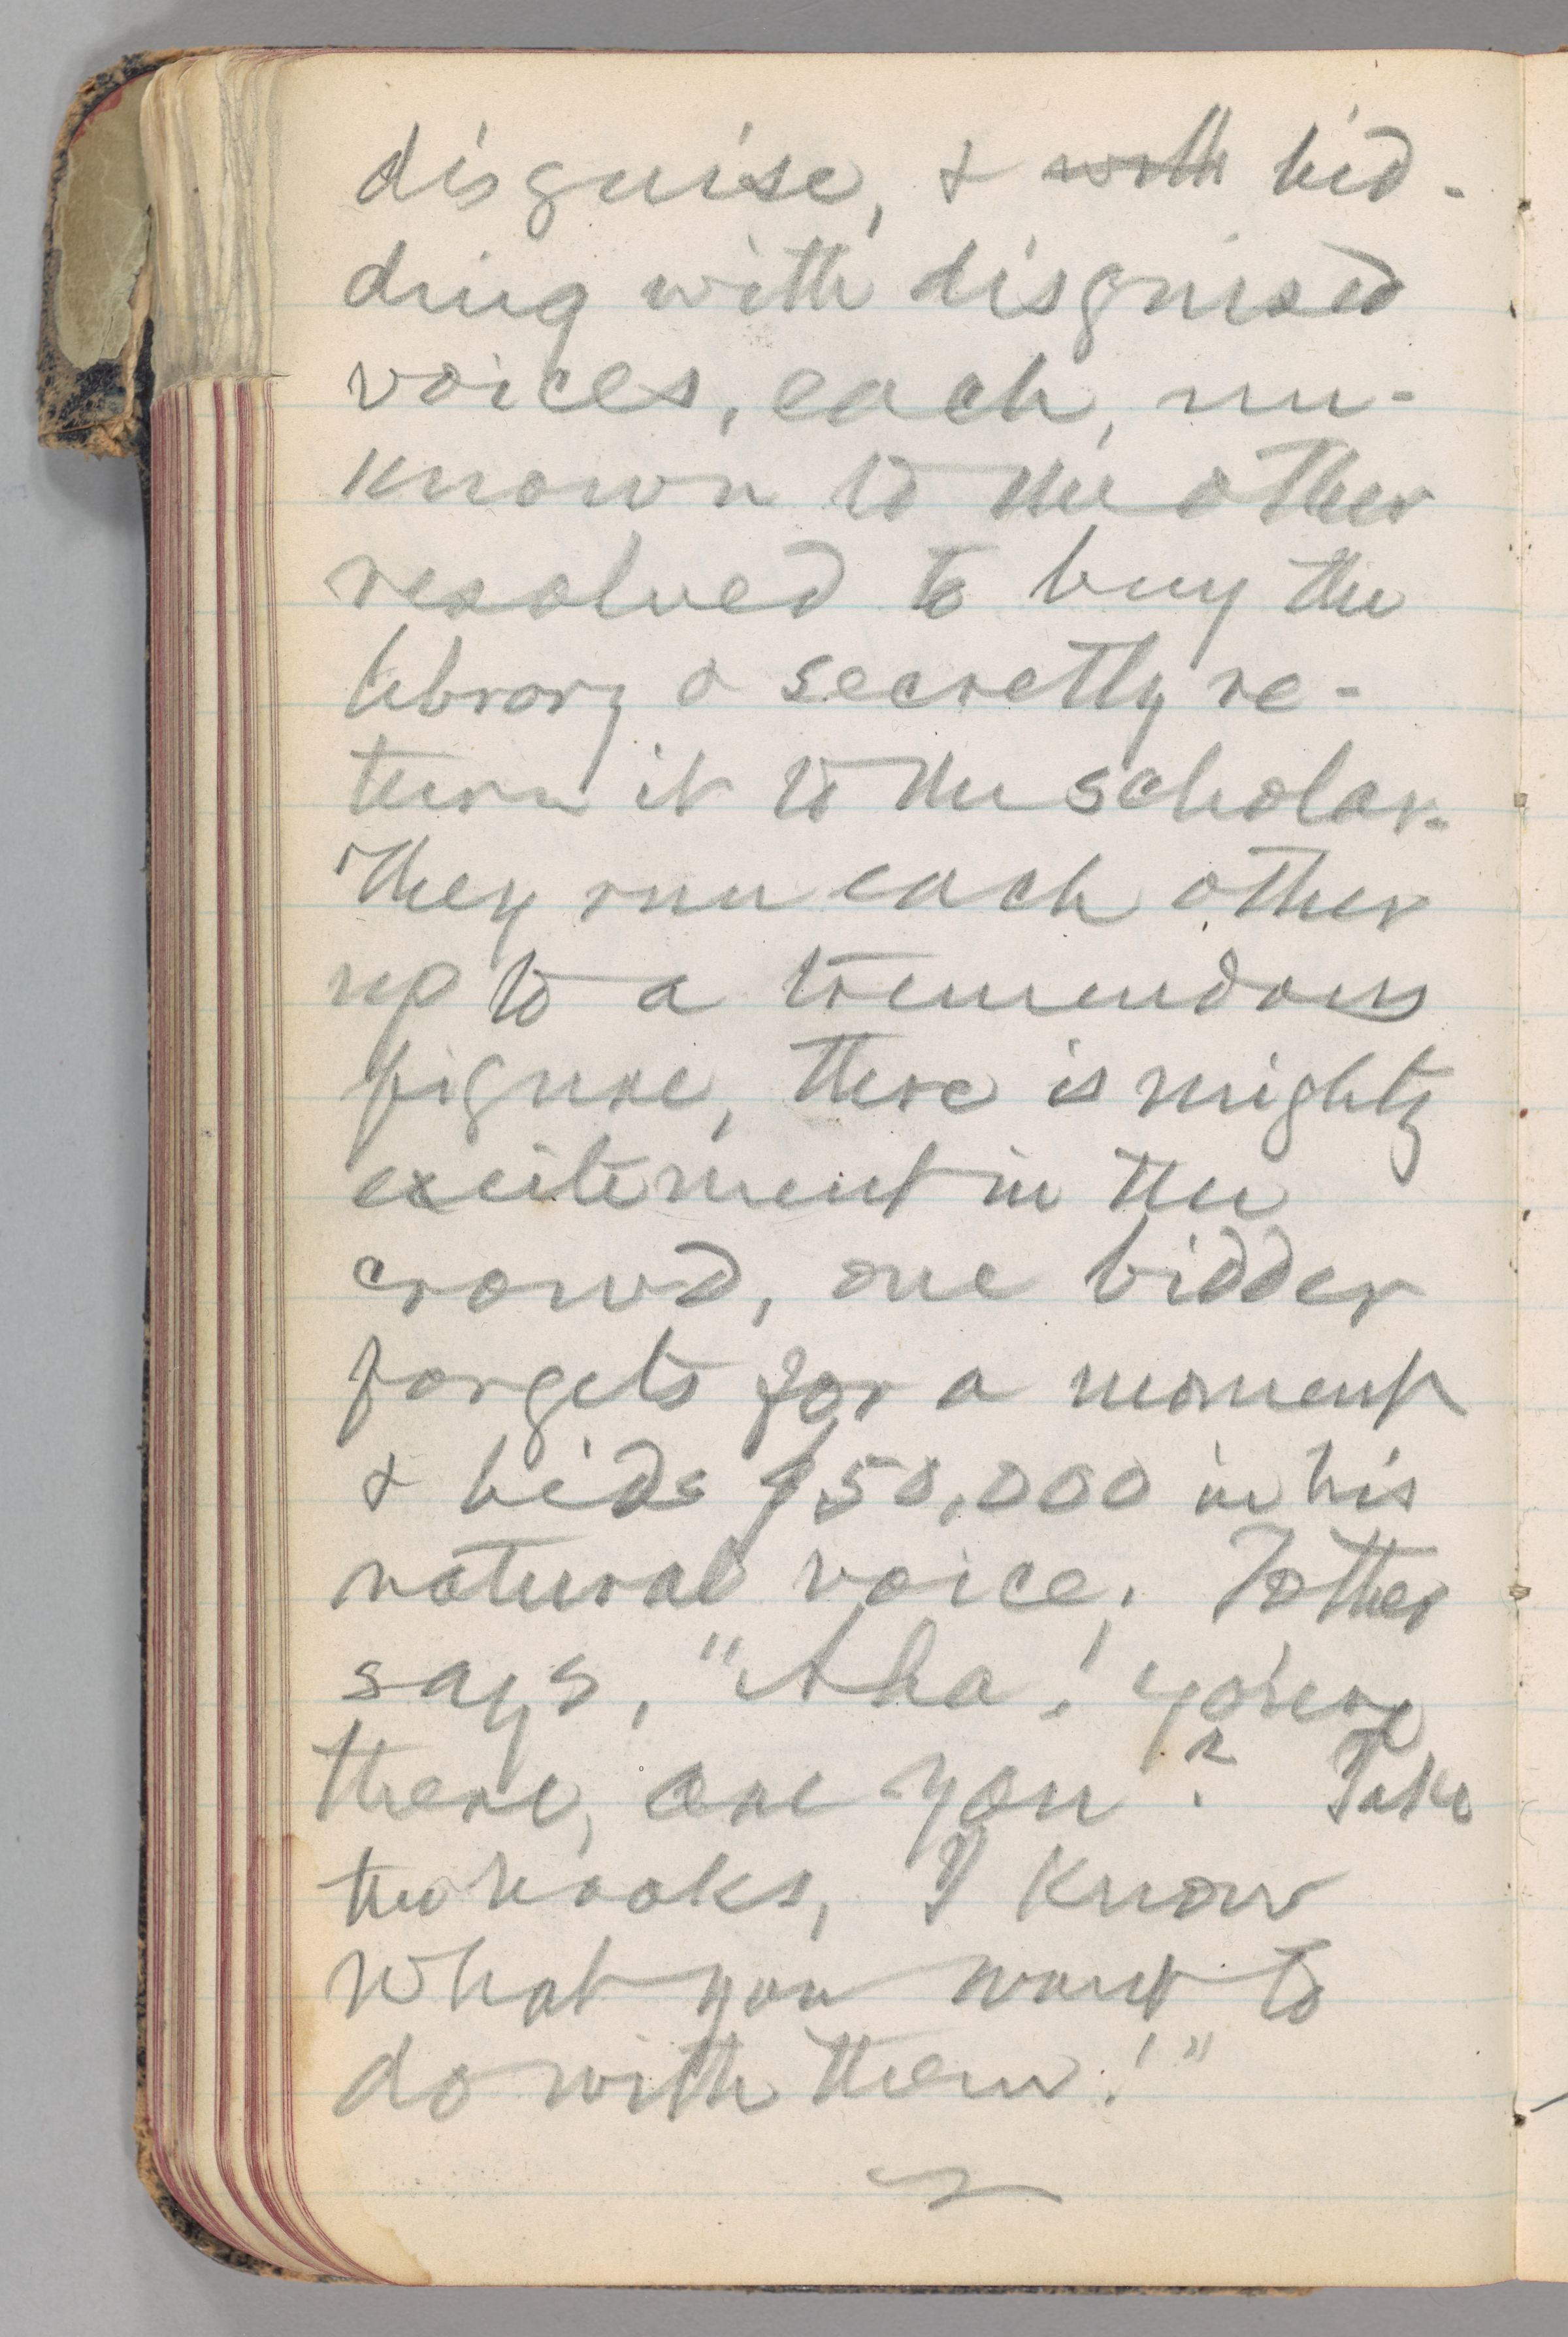 disguise, & ~~with~~ bid-
ding with disguised
voices, each, un-
known to the other
resolved to buy the
library & secretly re-
turn it to the scholar.
They run each other
up to a tremendous
figure, there is mighty
excitement in the
crowd, one bidder
forgets for a moment
& bids $50,000 in his
natural voice; Tother
says, "Aha! you're
there, are you? Take
the books, I know
what you want to
do with them!"